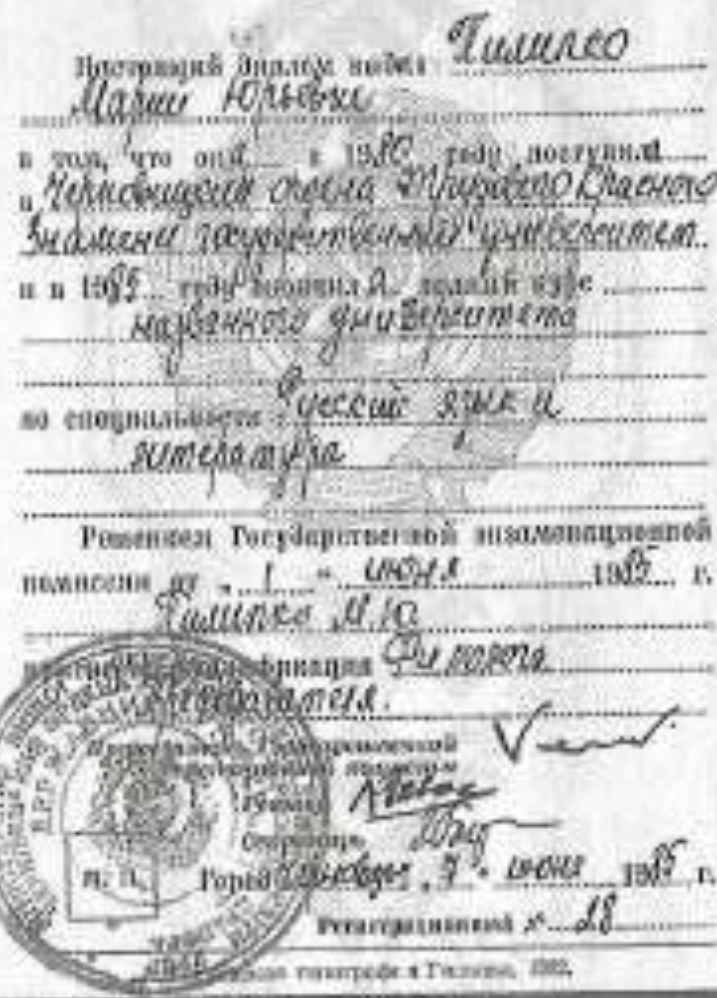 Настоящий диплом выдан Пилипко
Марии Юрьевне
в том, что она в 1980 году поступила
в Черновицкий ордена Трудового Красного
Знамени государственный университет
и в 1985 году окончила полный курс
названного университета
по специальности Русский язык и
литература
Решением Государственной экзаменационной
комиссии от „1“ июня 1985 г.
Пилипко М. Ю.
квалификация Филолога
преподавателя.
Председатель Государственной
экзаменационной комиссии
Ректор
Секретарь
М. П.
Город Черновцы „7“ июня 1985 г.
Регистрационный № 28